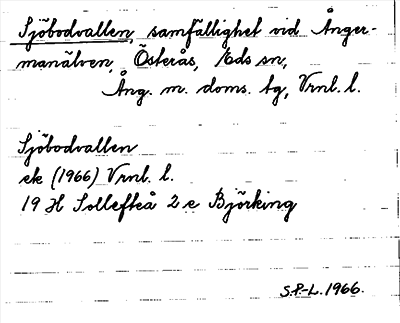 Sjöbodvallen, samfällighet vid Ånger-
manälven, Österås, Eds sn,
Ång. m. doms. tg, Vrnl. l.
Sjöbodvallen
ek (1966) Vrnl. l.
19 H Sollefteå 2 e Björking
S.P-L. 1966.